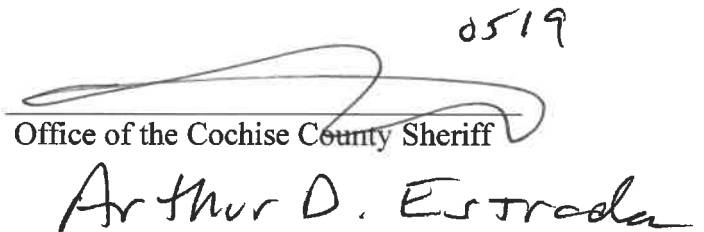 0519
Office of the Cochise County Sheriff
Arthur D. Estrada